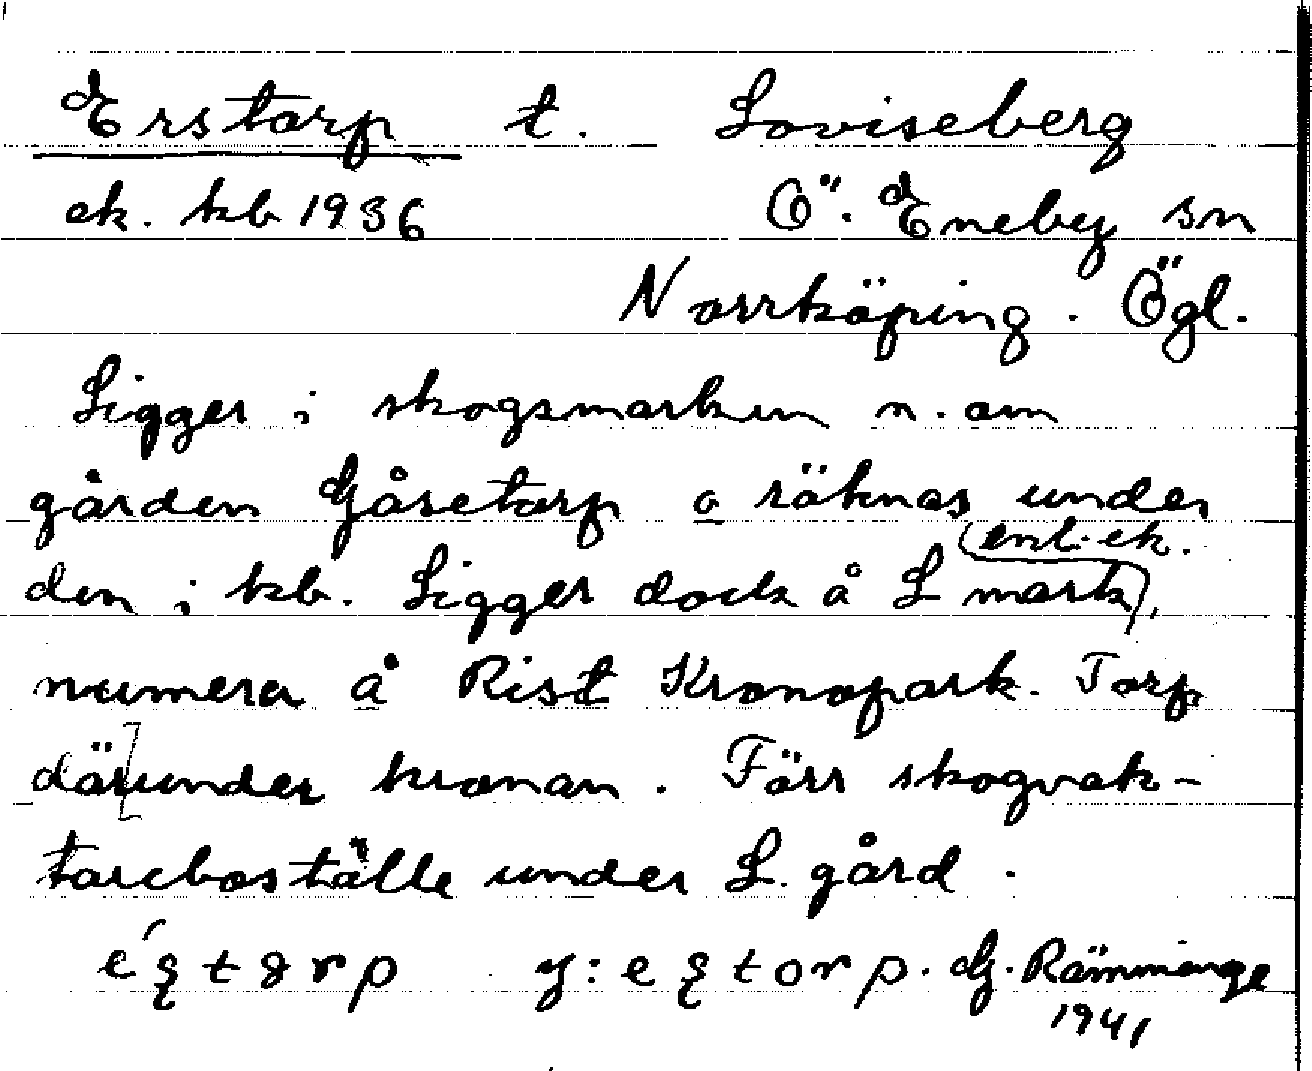 Erstorp t. Loviseberg
ek. kb 1936 Ö. Eneby sn
Norrköping. Ögl.
Ligger i skogsmarken n. om
gården Gåsetorp o räknas under
den i kb. Ligger dock å L mark,
(enl. ek.)
numera å Rist Kronopark. Torp
därunder kronan. Förr skogvak-
tareboställe under L. gård.
y: Rämminge
1941